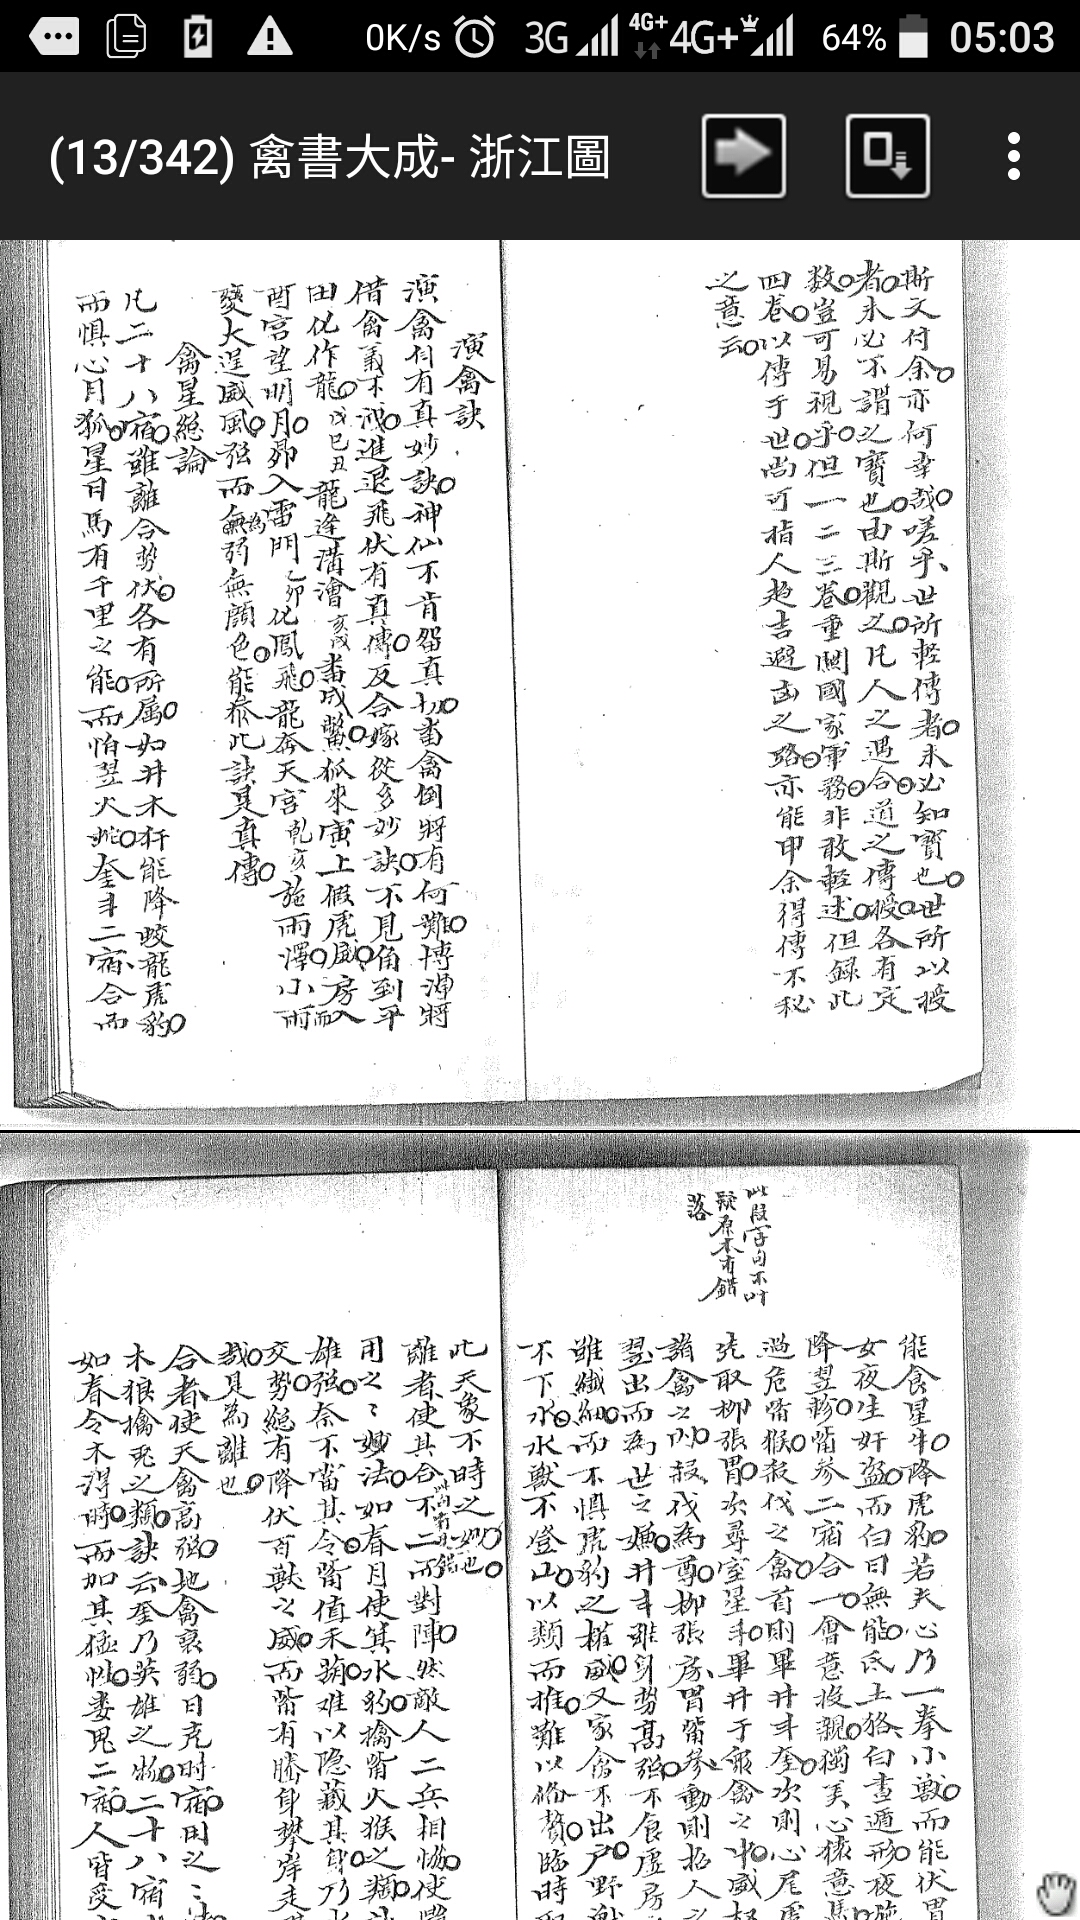 0K/s 3G 4G+ 4G+ 64% 05:03
(13/342) 禽書大成- 浙江圖
斯文付余亦何幸哉嗟乎世所輕傳者未必知寶也世所以授
者未必不謂之寶也由斯觀之凡人之遇合道之傳授各有定
数豈可易視乎但一二三卷重關國家軍務非敢輕述但録此
四卷以傳于世尚可指人趋吉避凶之路亦能甲余得傳不秘
之意云
演禽訣
演禽自有真妙訣神仙不肯留真切畨禽倒將有何難博淂將
借禽義不減進退飛伏有真傳反合嫁從多妙訣不見角到平
田化作龍戊巳丑龍逢溝澮亥戌畨成鱉狐來寅上假虎威房入
酉宮望明月昴入雷門乙卯化鳳飛龍奔天宮乾亥施雨澤小雨而
變大逞威風强而為弱無顔色能叅此訣是真傳
禽星總論
凡二十八宿雖離合勢伏各有所属如井木犴能降蛟龍虎豹
而惧心月狐星日馬有千里之能而怕翌火蛇奎斗二宿合而
此段字句不叶
疑原本有錯
落
能食星牛降虎豹若夫心乃一拳小獸而能伏胃
女夜生奸盗而白日無能氐土狢白晝遁形夜施
降翌軫觜参二宿合一會意投親獨美心猿意馬
過危觜猴殺伐之禽首則畢井斗奎次則心尾虎
先取柳張胃次尋室星斗畢井于衆禽之中威
諸禽之則殺伐為尊柳張房胃觜參動則招人之
翌出而為世之嫌井斗雖身勢高强不食虛房
雖纖細而不惧虎豹之權威又家禽不出户野獸
不下水水獸不登山以類而推難以俻贅臨時
此天象不時之妙也
離者使其合不二而對陣然敵人二兵相協使
用之之妙法如春月使箕水豹擒觜火猴之類
雄强奈不當其令觜值禾蒴难以隐藏其身乃
交勢縂有降伏百獸之威而觜有騰身攀岸走
哉見為離也
合者使天禽高强地禽衰弱日克时宿用之
木狼擒兎之類訣云奎乃英雄之物二十八宿
如春令木淂時而加其猛性婁鬼二宿人皆受